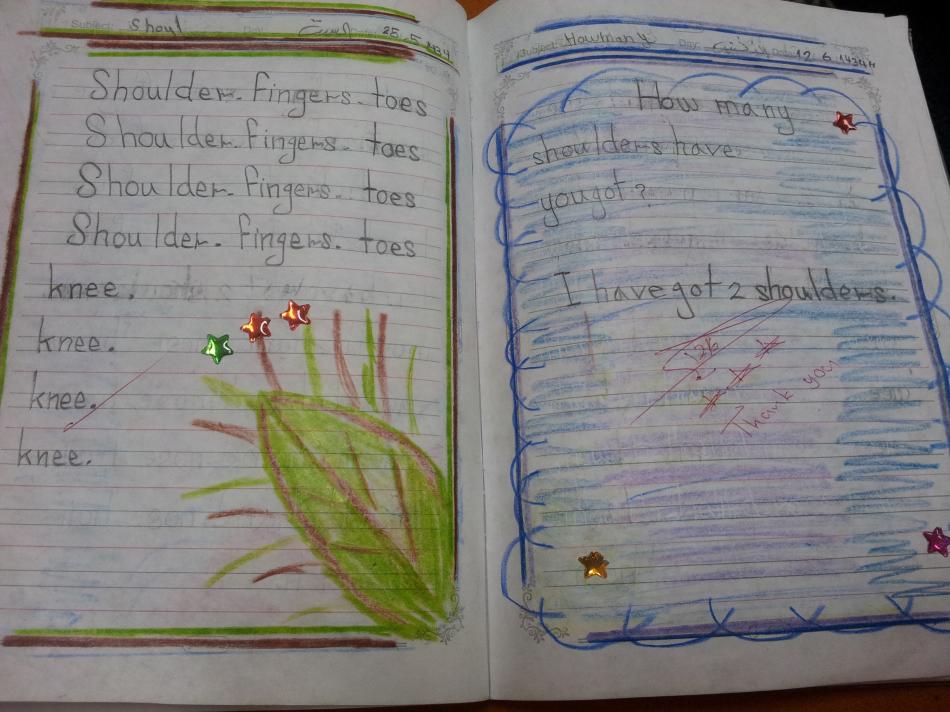 Subject: Shoul
السبت 25.5.1434
Shoulder. fingers. toes
Shoulder. fingers. toes
Shoulder. fingers. toes
Shoulder. fingers. toes
knee.
knee.
knee.
knee.
Subject: How many
12.6.1434H
How many
shoulders have
you got?
I have got 2 shoulders.
Thank you